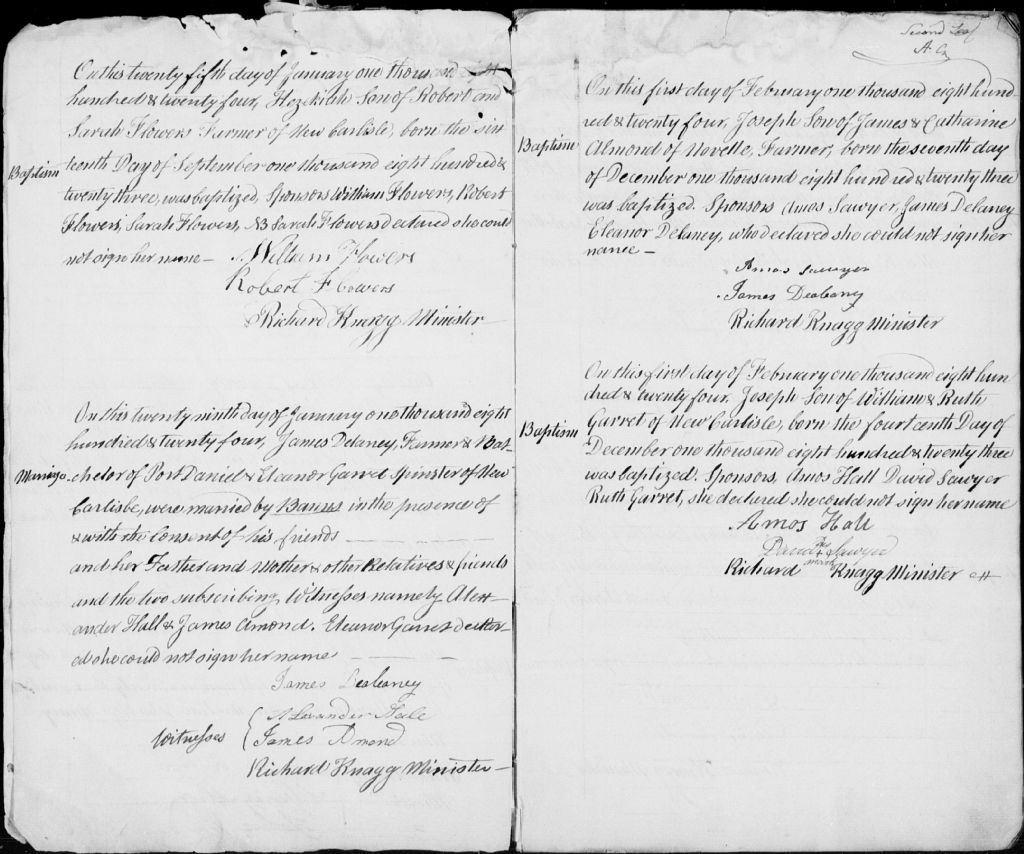 On this twenty fifth day of January one thousand
hundred & twenty four, Hezekiah Son of Robert and
Sarah Flowers Farmer of New Carlisle, born the six-
Baptism
teenth Day of September one thousand eight hundred &
twenty three, was baptized, Sponsors William Flowers, Robert
Flowers, Sarah Flowers, NB Sarah Flowers declared she could
not sign her name —
William Flowers
Robert Flowers
Richard Knagg Minister
On this twenty ninth day of January one thousand eight
hundred & twenty four, James Delaney, Farmer & Bat-
Marriage
chelor of Port Daniel & Eleanor Garret Spinster of New
Carlisle, were married by Banns in the presence of
& with the Consent of his friends
and her Father and Mother & other Relatives & friends
and the two subscribing Witnesses namely Alex-
ander Hall & James Amond. Eleanor Garret declar-
ed she could not sign her name
James Dealaney
Witnesses
Alavander Hale
James Amond
Richard Knagg Minister —
Second Leaf
On this first day of February one thousand eight hund-
red & twenty four, Joseph Son of James & Catharine
Baptism
Almond of Novelle, Farmer, born the seventh day
of December one thousand eight hundred & twenty three
was baptized. Sponsors Amos Sawyer, James Delaney
Eleanor Delaney, who declared she could not sign her
name —
Amos Sawyer
James Dealaney
Richard Knagg Minister
On this first day of February one thousand eight hun-
dred & twenty four, Joseph Son of William & Ruth
Baptism
Garret of New Carlisle, born the fourteenth Day of
December one thousand eight hundred & twenty three
was baptized. Sponsors, Amos Hall David Sawyer
Ruth Garret, she declared she could not sign her name
Amos Hall
David his + mark Sawyer
Richard Knagg Minister